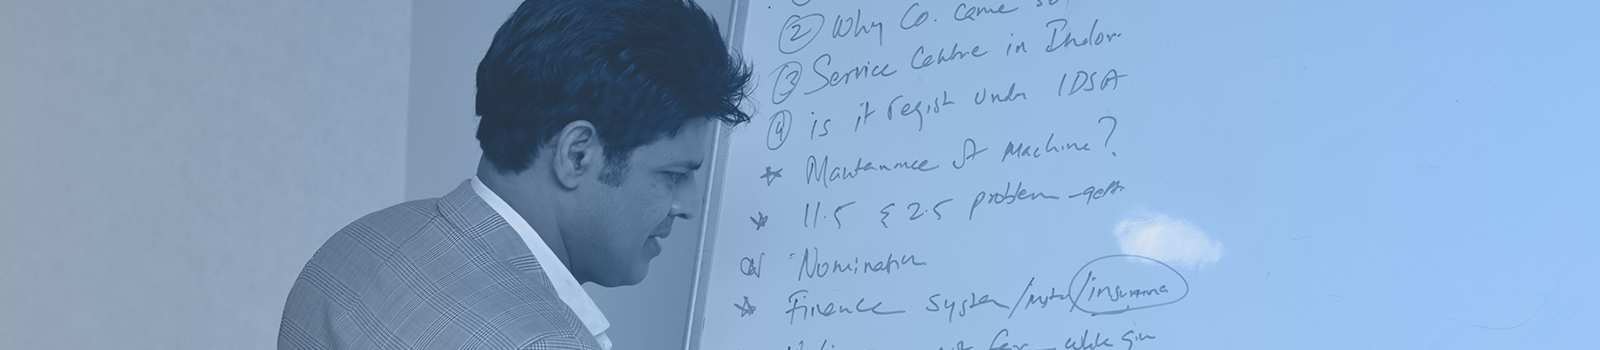 ② Why Co. came so
③ Service Centre in Indor.
④ is it regist under IDSA
* Mantannce of machine?
* 11.5 & 2.5 problem
Nomination
* Finance system / / insurance
while